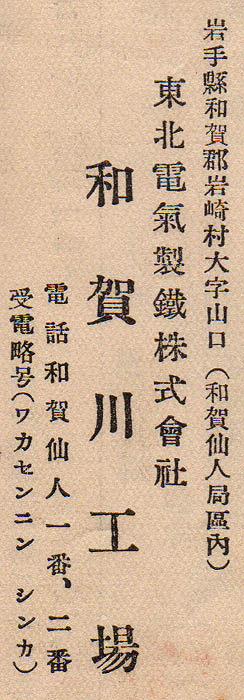 岩手縣和賀郡岩崎村大字山口(和賀仙人局區內)
東北電氣製鐵株式會社
和賀川工場
電話和賀仙人一番、二番
受電略号(ワカセンニン シンカ)